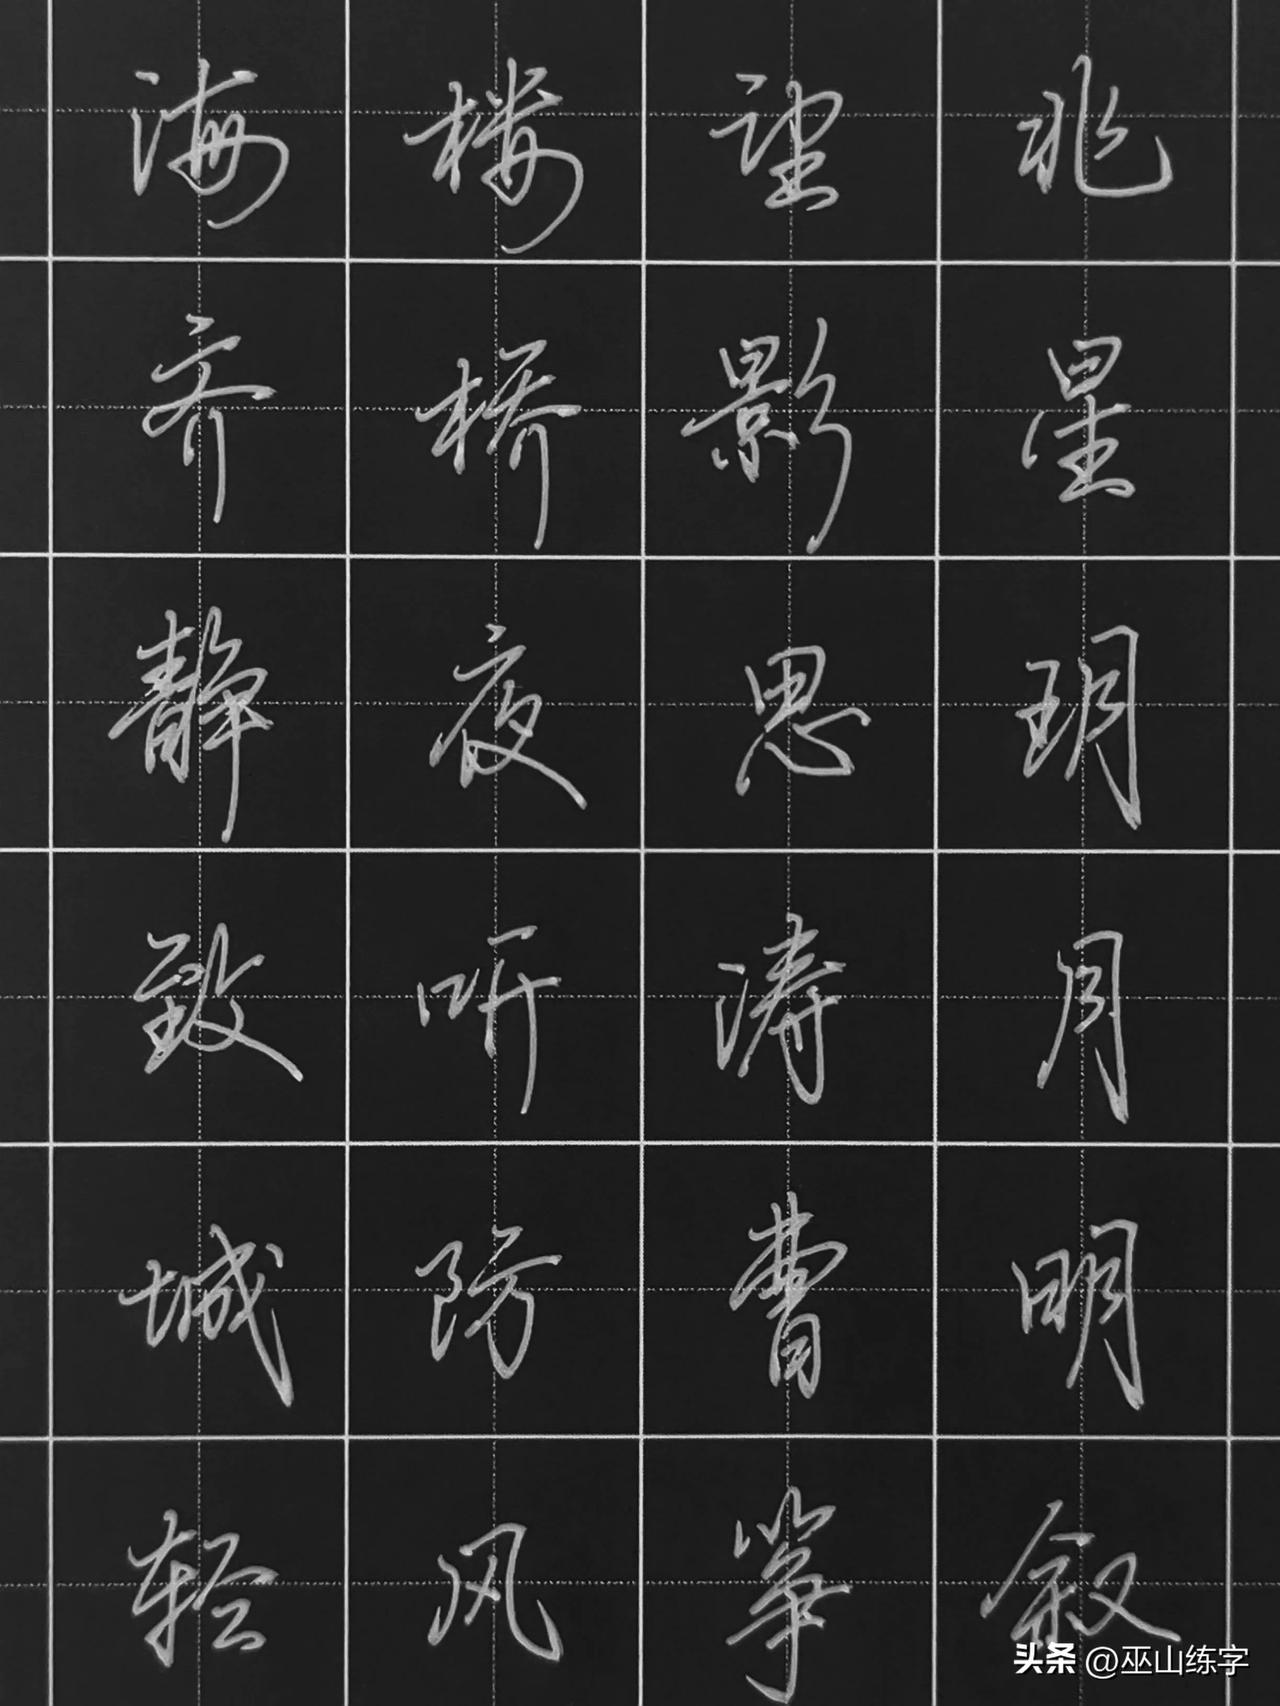 海楼望兆
齐桥影星
静夜思玥
致听涛月
城防曹明
轻风筝叙
头条 @巫山练字